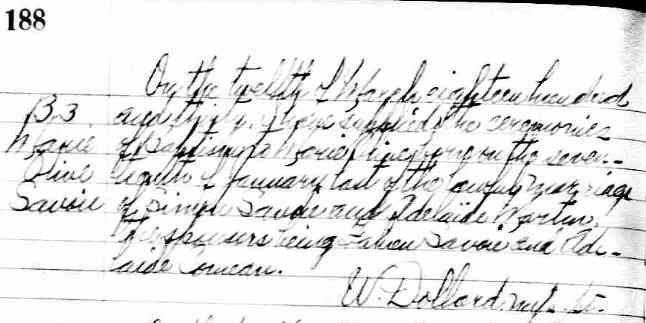 188
On the twelfth of March eighteen hundred
B.3. and thirty. I have supplied the ceremonies
Marie of Baptism to Marie Olive born on the seven-
Olive teenth of January last of the lawful marriage
Savoie of Simon Savoie and Adelaide Martin,
the sponsors being Fabien Savoie and Ade-
laide Comeau.
W. Dollard